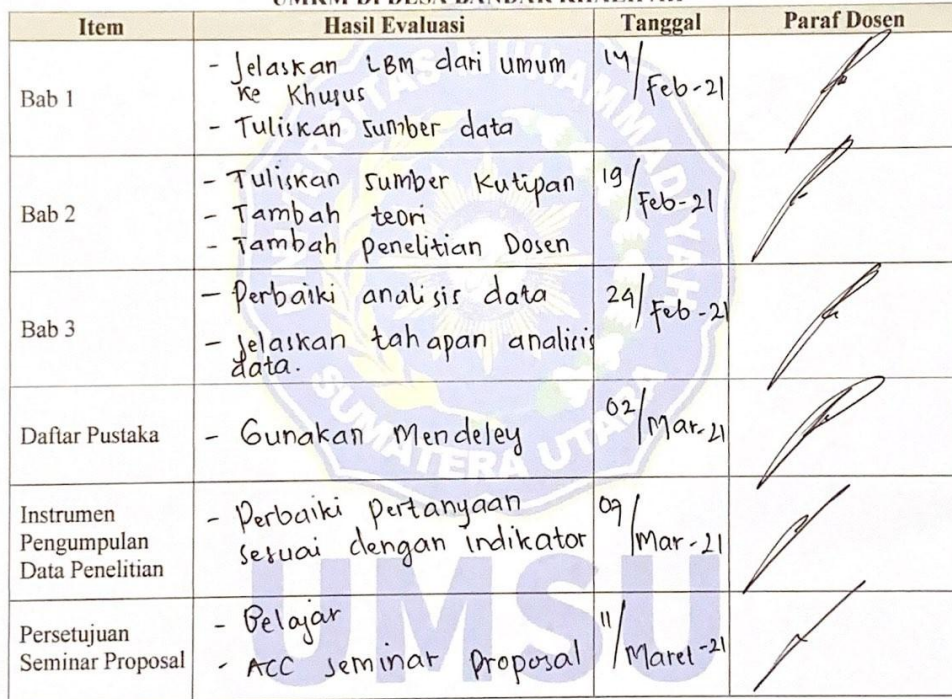 Item Hasil Evaluasi Tanggal Paraf Dosen
Bab 1
- Jelaskan LBM dari umum
ke Khusus
- Tuliskan Sumber data
14/Feb-21
Bab 2
- Tuliskan Sumber Kutipan
- Tambah teori
- Tambah Penelitian Dosen
19/Feb-21
Bab 3
- Perbaiki analisis data
- Jelaskan tahapan analisis
data.
24/Feb-21
Daftar Pustaka
- Gunakan Mendeley
02/Mar-21
Instrumen
Pengumpulan
Data Penelitian
- Perbaiki Pertanyaan
sesuai dengan indikator
09/Mar-21
Persetujuan
Seminar Proposal
- Belajar
- ACC Seminar Proposal
11/Maret-21
SUMATERA UTARA
UMSU